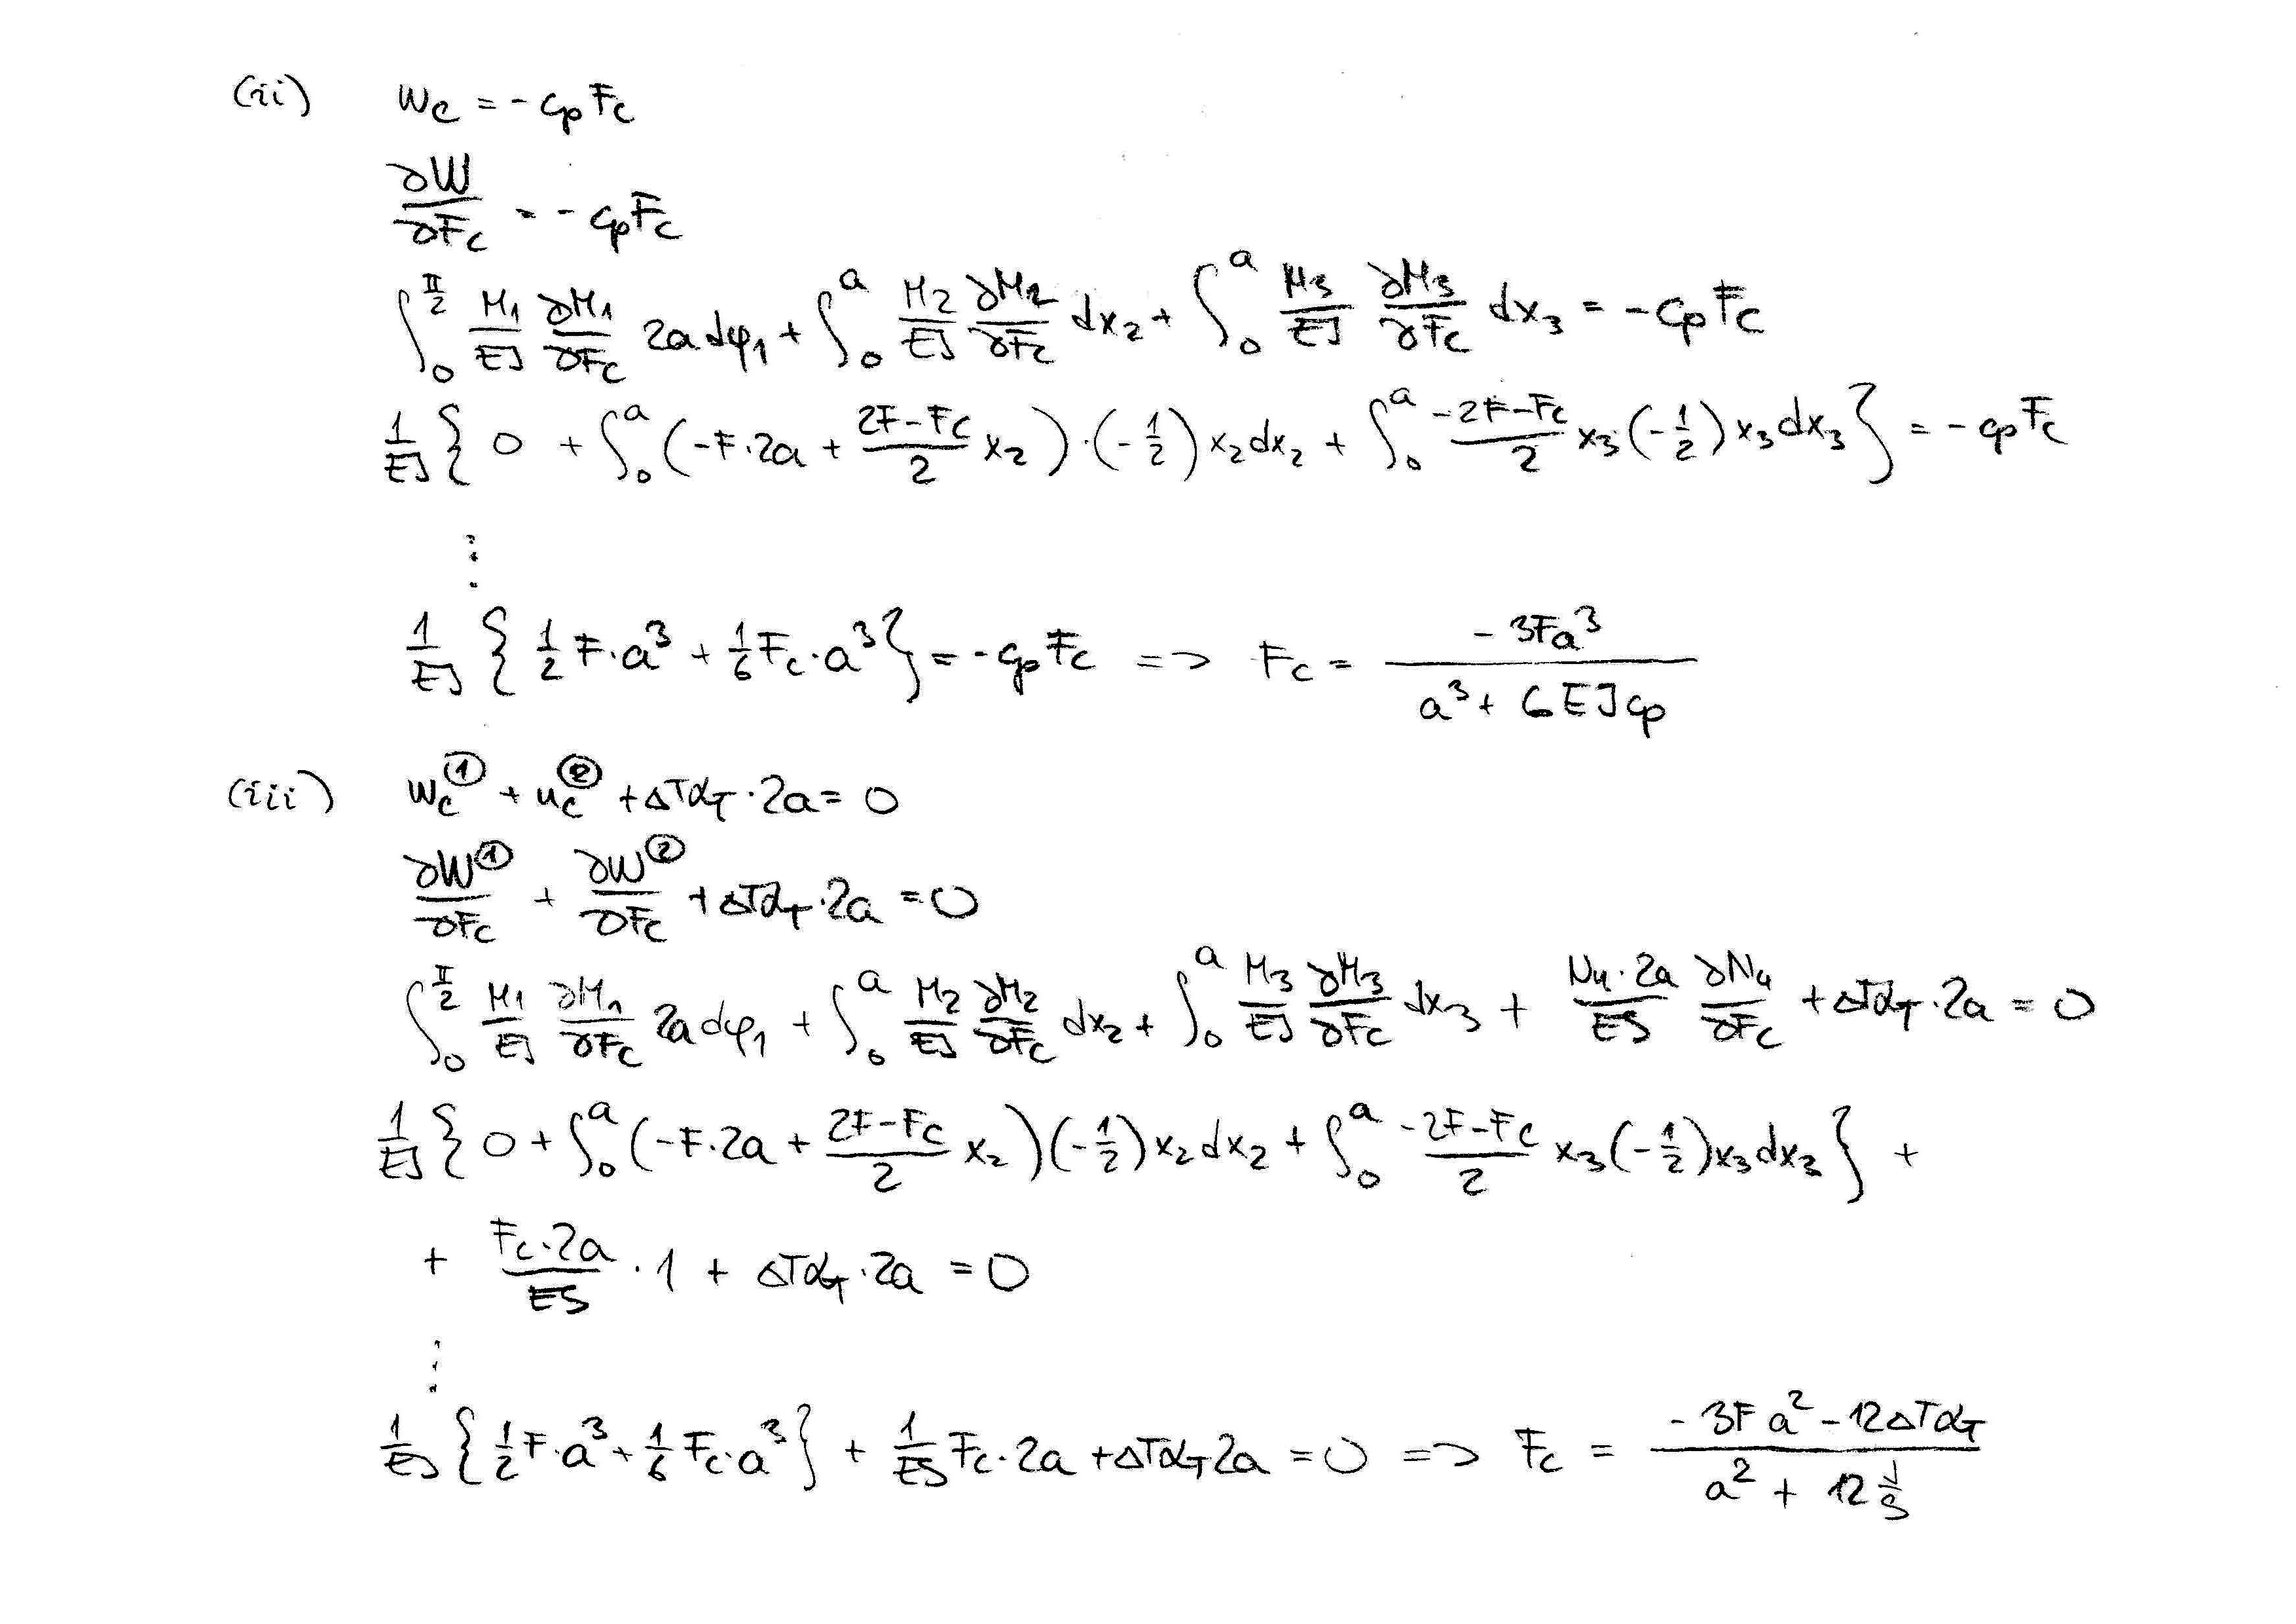 (ii) w_C = - c_p F_C
∂W/∂F_C = - c_p F_C
∫_0^{π/2} M_1/EJ ∂M_1/∂F_C 2a dφ_1 + ∫_0^a M_2/EJ ∂M_2/∂F_C dx_2 + ∫_0^a M_3/EJ ∂M_3/∂F_C dx_3 = - c_p F_C
1/EJ { 0 + ∫_0^a (-F·2a + (2F-F_C)/2 x_2)·(-1/2) x_2 dx_2 + ∫_0^a (-2F-F_C)/2 x_3 (-1/2) x_3 dx_3 } = - c_p F_C
⋮
1/EJ { 1/2 F·a^3 + 1/6 F_C·a^3 } = - c_p F_C => F_C = (-3Fa^3)/(a^3 + 6EJc_p)
(iii) w_C^① + u_C^② + ΔTα_T·2a = 0
∂W^①/∂F_C + ∂W^②/∂F_C + ΔTα_T·2a = 0
∫_0^{π/2} M_1/EJ ∂M_1/∂F_C 2a dφ_1 + ∫_0^a M_2/EJ ∂M_2/∂F_C dx_2 + ∫_0^a M_3/EJ ∂M_3/∂F_C dx_3 + (N_4·2a)/ES ∂N_4/∂F_C + ΔTα_T·2a = 0
1/EJ { 0 + ∫_0^a (-F·2a + (2F-F_C)/2 x_2)(-1/2) x_2 dx_2 + ∫_0^a (-2F-F_C)/2 x_3 (-1/2) x_3 dx_3 } +
+ (F_C·2a)/ES · 1 + ΔTα_T·2a = 0
⋮
1/EJ { 1/2 F·a^3 + 1/6 F_C·a^3 } + 1/ES F_C·2a + ΔTα_T 2a = 0 => F_C = (-3Fa^2 - 12ΔTα_T)/(a^2 + 12 J/S)